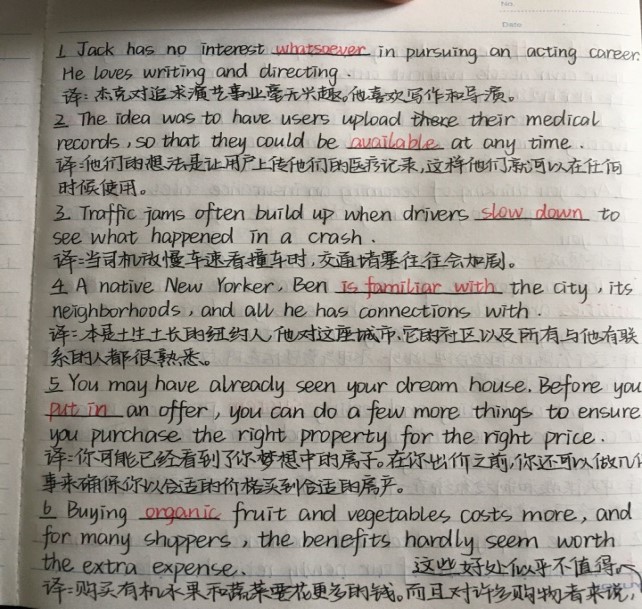 No.
Date
1. Jack has no interest whatsoever in pursuing an acting career.
He loves writing and directing.
译: 杰克对追求演艺事业毫无兴趣。他喜欢写作和导演。
2. The idea was to have users upload there their medical
records, so that they could be available at any time.
译: 他们的想法是让用户上传他们的医疗记录,这样他们就可以在任何
时候使用。
3. Traffic jams often build up when drivers slow down to
see what happened in a crash.
译: 当司机放慢车速看撞车时,交通堵塞往往会加剧。
4. A native New Yorker, Ben is familiar with the city, its
neighborhoods, and all he has connections with.
译: 本是土生土长的纽约人,他对这座城市、它的社区以及所有与他有联
系的人都很熟悉。
5. You may have already seen your dream house. Before you
put in an offer, you can do a few more things to ensure
you purchase the right property for the right price.
译: 你可能已经看到了你梦想中的房子。在你出价之前,你还可以做几件
事来确保你以合适的价格买到合适的房产。
6. Buying organic fruit and vegetables costs more, and
for many shoppers, the benefits hardly seem worth
the extra expense. 这些好处似乎不值得
译: 购买有机水果和蔬菜要花更多的钱。而且对许多购物者来说,